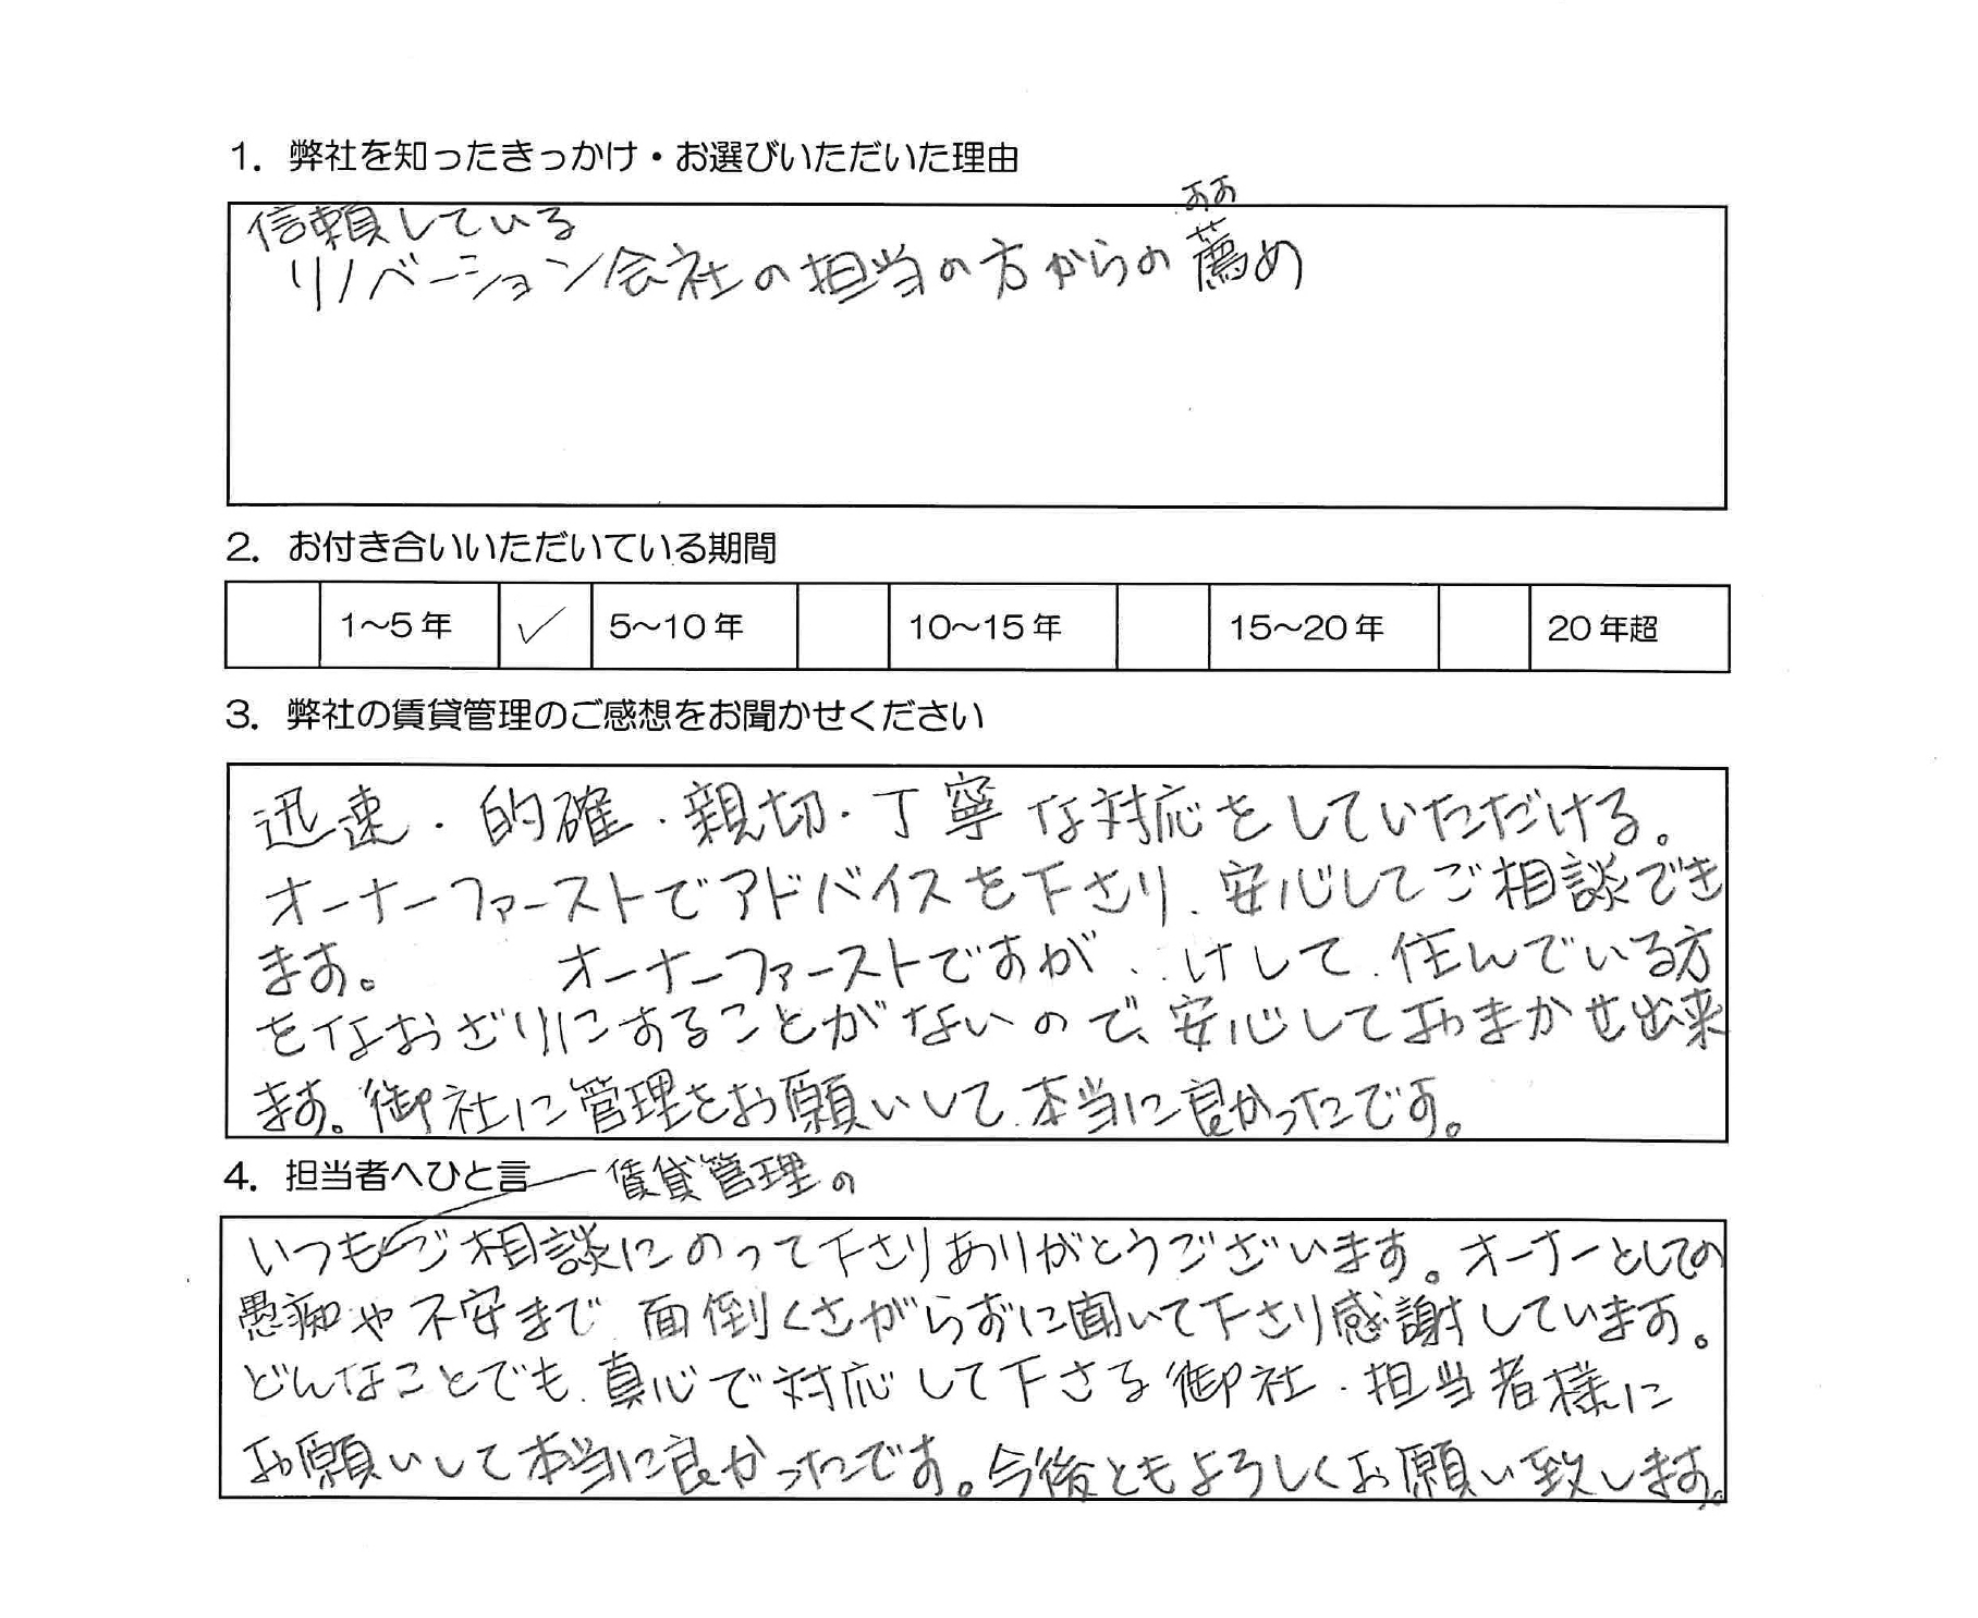 1. 弊社を知ったきっかけ・お選びいただいた理由
信頼している
リノベーション会社の担当の方からの薦め
2. お付き合いいただいている期間
1〜5年 ✓ 5〜10年 10〜15年 15〜20年 20年超
3. 弊社の賃貸管理のご感想をお聞かせください
迅速・的確・親切・丁寧な対応をしていただける。
オーナーファーストでアドバイスを下さり、安心してご相談でき
ます。 オーナーファーストですが、けして、住んでいる方
をなおざりにすることがないので、安心しておまかせ出来
ます。御社に管理をお願いして、本当に良かったです。
4. 担当者へひと言
賃貸管理の
いつもご相談にのって下さりありがとうございます。オーナーとしての
愚痴や不安まで、面倒くさがらずに聞いて下さり感謝しています。
どんなことでも、真心で対応して下さる御社・担当者様に
お願いして本当に良かったです。今後ともよろしくお願い致します。